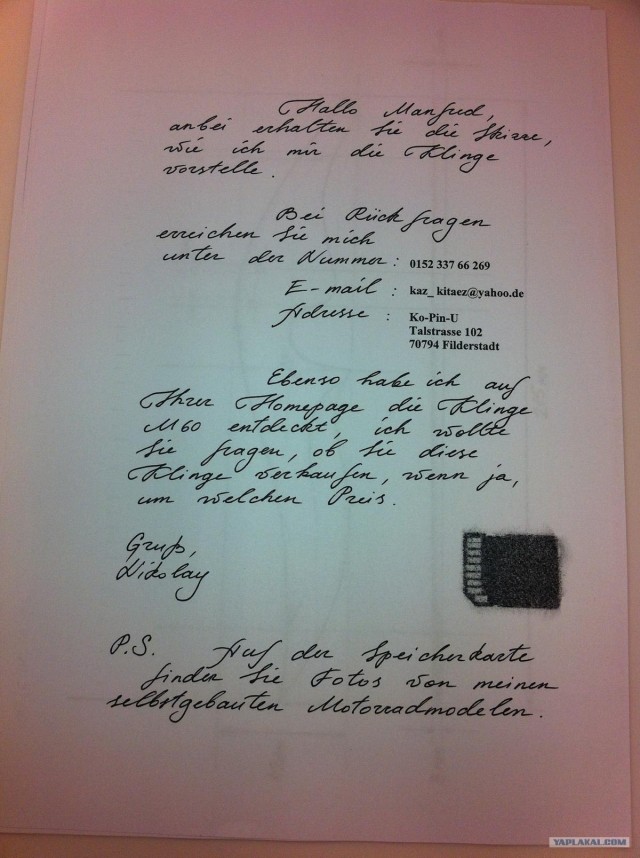 Hallo Manfred,
anbei erhalten Sie die Skizze,
wie ich mir die Klinge
vorstelle.
Bei Rückfragen
erreichen Sie mich
unter der Nummer: 0152 337 66 269
E-mail : kaz_kitaez@yahoo.de
Adresse : Ko-Pin-U
Talstrasse 102
70794 Filderstadt
Ebenso habe ich auf
Ihrer Homepage die Klinge
M60 entdeckt, ich wollte
Sie fragen, ob Sie diese
Klinge verkaufen, wenn ja,
um welchen Preis.
Gruß,
Nikolay
P.S. Auf der Speicherkarte
finden Sie Fotos von meinen
selbstgebauten Motorradmodelen.
YAPLAKAL.COM